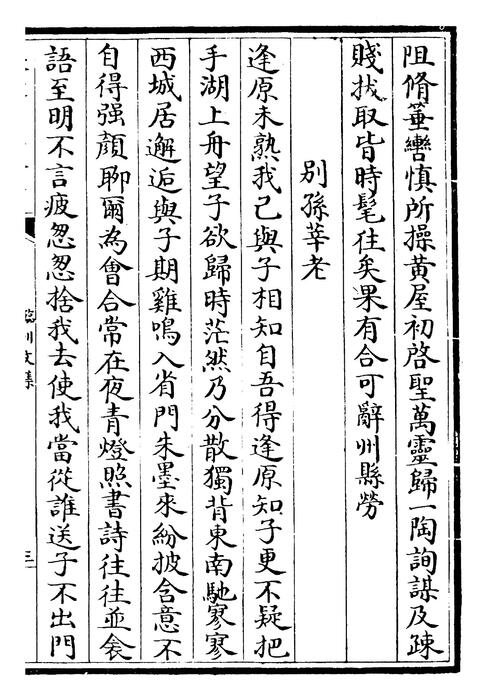 阻脩輂轡慎所操黄屋初啓聖萬靈歸一陶詢謀及疎
賤拔取皆時髦往矣果有合可辭州縣勞
别孫莘老
逢原未熟我已與子相知自吾得逢原知子更不疑把
手湖上舟望子欲歸時茫然乃分散獨背東南馳寥寥
西城居邂逅與子期雞鳴入省門朱墨來紛披含意不
自得强顔聊爾為會合常在夜青燈照書詩往往並衾
語至明不言疲忽忽捨我去使我當從誰送子不出門
臨川文集
三